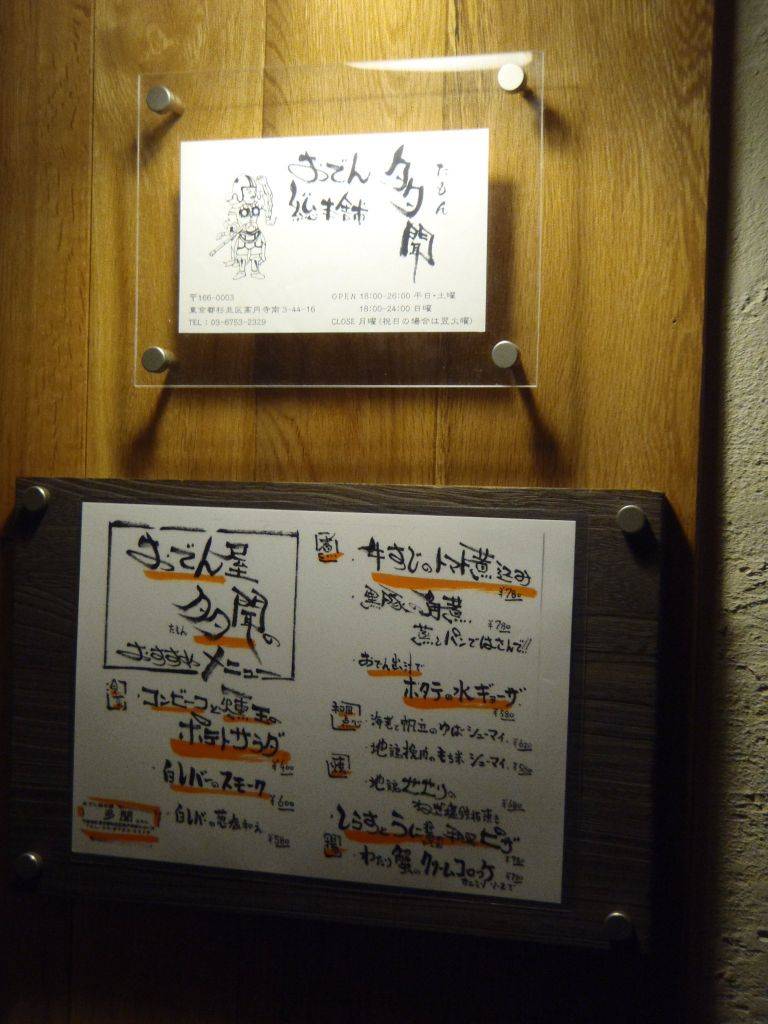 おでん
総本舗
多聞
たもん
〒166-0003
東京都杉並区高円寺南3-44-16
TEL：03-6753-2329
OPEN 18:00-26:00 平日・土曜
18:00-24:00 日曜
CLOSE 月曜(祝日の場合は翌火曜)
おでん屋
多聞の
たもん
おすすめメニュー
・コンビーフと燻玉の
ポテトサラダ
¥400
・白レバーのスモーク
¥600
・白レバーの葱塩和え
¥580
多聞
・牛すじのトマト煮込み
¥780
・黒豚の角煮
¥780
蒸しパンではさんで!!
・おでん出汁で
ホタテの水ギョーザ
¥580
・海老と帆立のゆばシューマイ
・地鶏挽肉のもち米シューマイ
・地鶏せせりの
ねぎ塩鉄板焼き
・しらすとうに
ピザ
・わたり蟹のクリームコロッケ